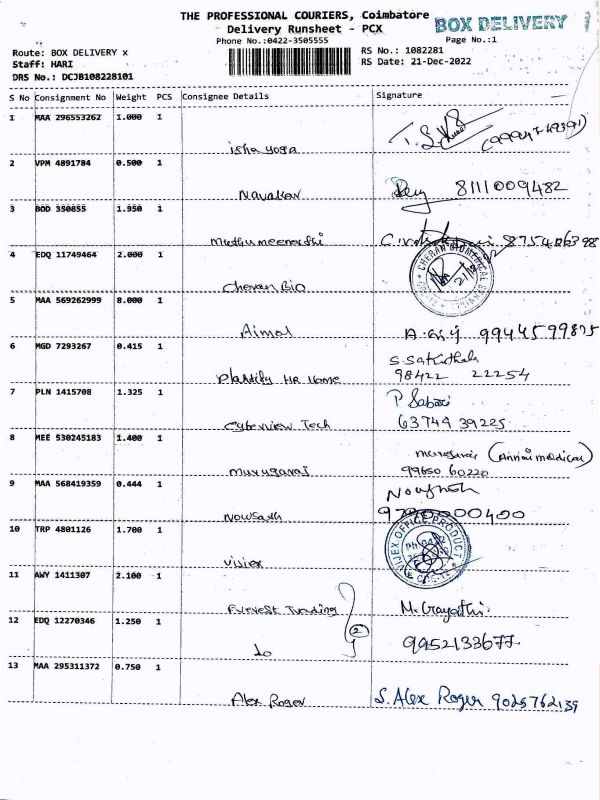 THE PROFESSIONAL COURIERS, Coimbatore
Delivery Runsheet - PCX
BOX DELIVERY
Phone No.:0422-3505555
Page No.:1
Route: BOX DELIVERY x
Staff: HARI
DRS No.: DCJB108228101
RS No.: 1082281
RS Date: 21-Dec-2022
S No Consignment No Weight PCS Consignee Details Signature
1 MAA 296553262 1.000 1
isha yoga
2 VPM 4891784 0.500 1
Navakar 8111009482
3 BOD 350855 1.950 1
muthumeenadhi
4 EDQ 11749464 2.000 1
CHERAN BIOMEDICAL
Cheran Bio
5 MAA 569262999 8.000 1
Aimol 9944599875
6 MGD 7293267 0.415 1
98422 22254
HR Home
7 PLN 1415708 1.325 1
P Sabari
Cyberview Tech 63744 39225
8 MEE 530245183 1.400 1
(Annai medical)
murugaraj 99650 60220
9 MAA 568419359 0.444 1
Nowsath
10 TRP 4801126 1.700 1
VIJEX OFFICE PRODUCT
Vijex
11 AWY 1411307 2.100 1
Everest Trading M. Gayathi
12 EDQ 12270346 1.250 1
2
9952133677
13 MAA 295311372 0.750 1
Alex Roger S. Alex Roger 9025762139